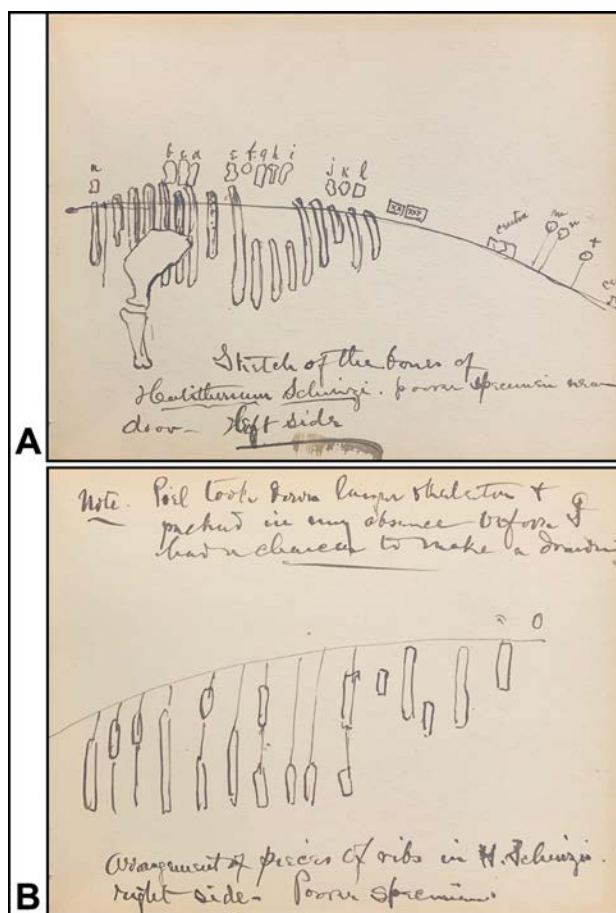 A
a b c d e f g h i j k l
xx xxx
extra m n
+
Sketch of the bones of
Halitherium Schinzi. poorer specimen near
door - Left side
B
Note. Piel took down larger skeleton &
packed in my absence before I
had a chance to make a drawing
O
arrangement of pieces of ribs in H. Schinzi.
right side - Poorer specimen.